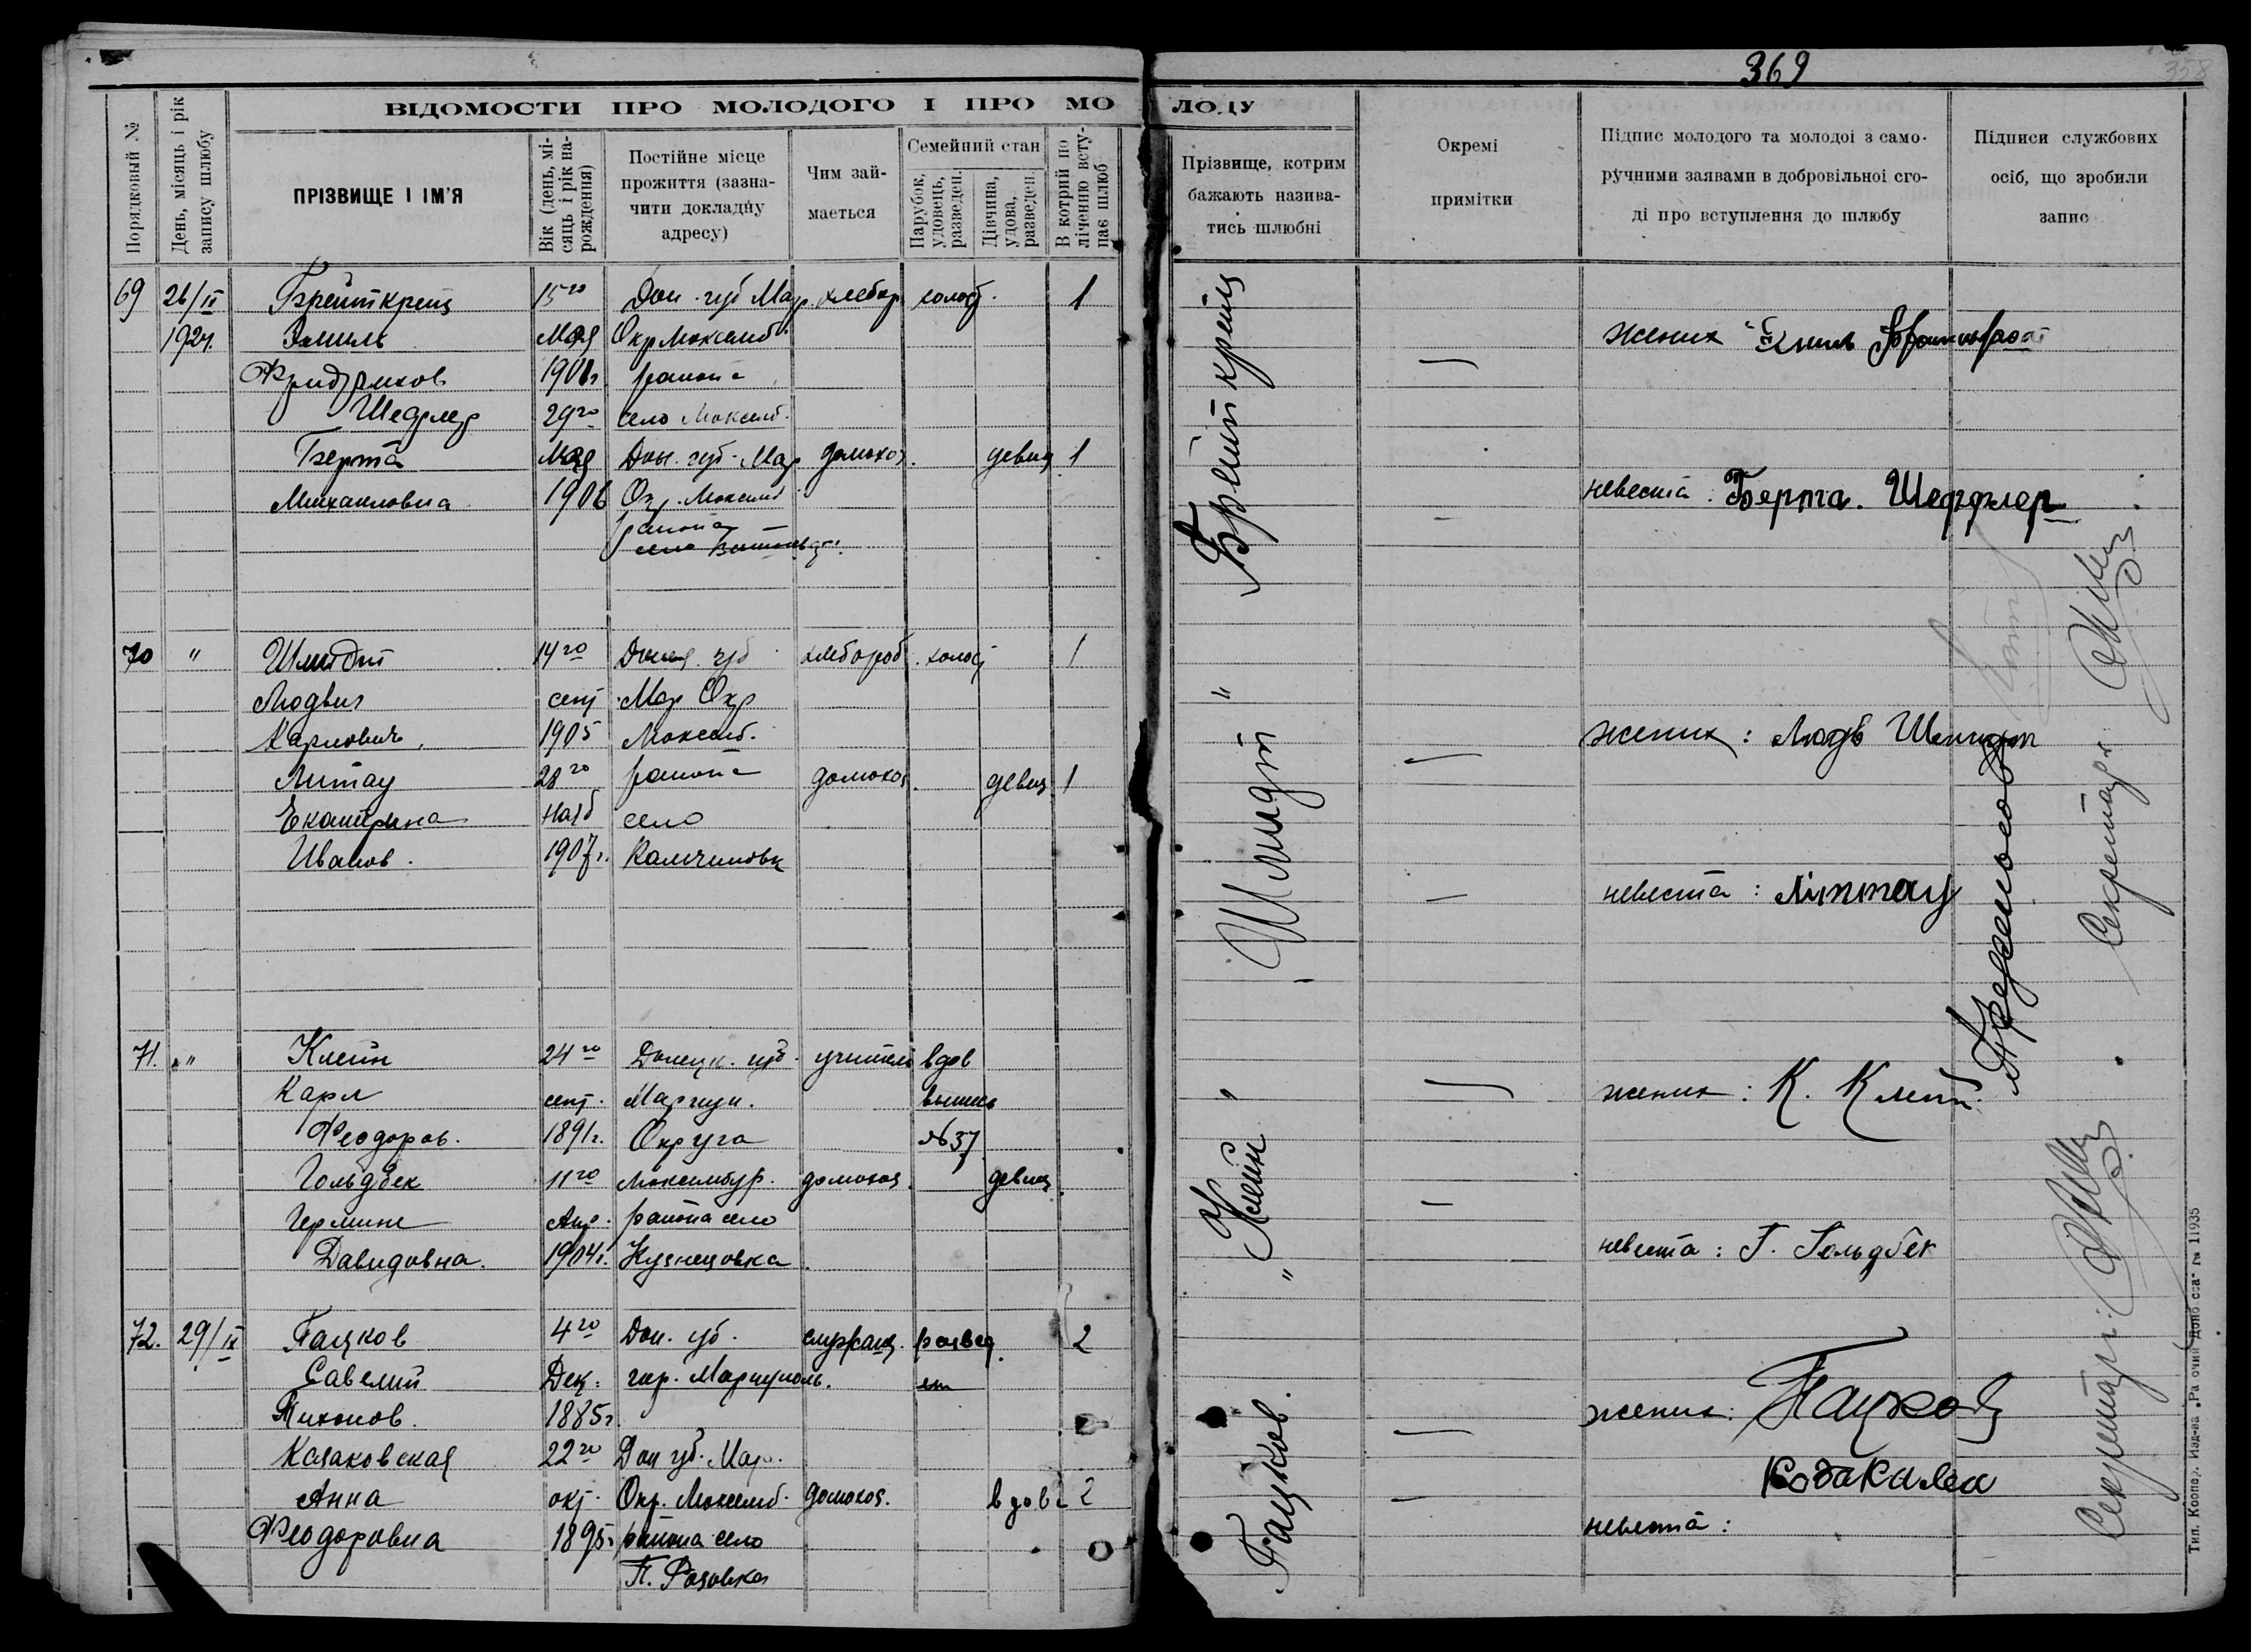 369
358
ВІДОМОСТИ ПРО МОЛОДОГО І ПРО МОЛОДУ
Порядковый №
День, місяць і рік запису шлюбу
ПРІЗВИЩЕ І ІМ'Я
Вік (день, місяць і рік нарождення)
Постійне місце прожиття (зазначити докладну адресу)
Чим займається
Семейний стан
Парубок, удовець, разведен.
Дівчина, удова, разведен.
В котрий по ліченню вступає шлюб
Прізвище, котрим бажають називатись шлюбні
Окремі примітки
Підпис молодого та молодоі з саморучними заявами в добровільноі сгоді про вступлення до шлюбу
Підписи службових осіб, що зробили запис
69 26/IX Брейткрейц 15го Дон. губ Мар. хлебор. холост. 1
1924. Эмиль Мая Окр Максимб
Фридрихов 190 г. района
Шефлер 29го село Максимб.
Берта Мая Дон. губ. Мар домохоз. девиц 1
Михаиловна 1906 Окр. Максимб
района
село
Брейткрейц
жених
невеста: Берта. Шеффлер
70 " Шмидт 14го Донец. губ хлебороб. холост 1
Людвиг сент Мар Окр
Карлович. 1905 Максимб.
Литау 28го района домохоз. девиц. 1
Екатерина нояб село
Иванов. 1907г. Калчиновк
" Шмидт "
жених: Людв Шмидт
невеста: Литтау
71. " Клейн 24го Донецк. губ. учитель вдов
Карл сент. Мариуп. выпись
Феодоров. 1891г. Округа №37
Гольдбек 11го Максимбур. домохоз. девиц.
Гермине Апр. района село
Давидовна. 1904г. Кузнецовка
" Клейн "
жених: К. Клейн.
невеста: Г. Гольдбек
72. 29/IX Пацков 4го Дон. губ. служащ. развед. 2
Савелий Дек. гор. Мариуполь.
Тихонов. 1885г.
Казаковская 22го Дон губ. Мар.
Анна окт. Окр. Максимб. домохоз. вдова 2
Феодоровна 1895г района село
П. Розовка
Пацков.
жених: Пацков
невеста:
Секретарь
Секретарь:
Тип. Коопер. Изд-ва